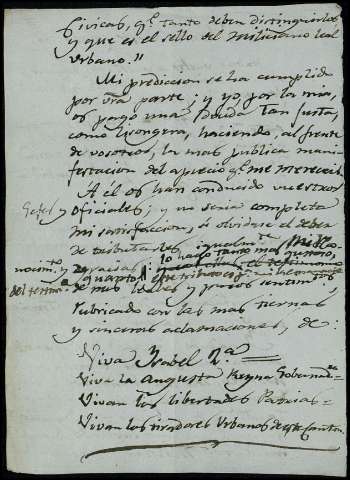 Civicas, qe. tanto deben distinguirlos
y que es el sello del Miliciano leal
Urbano."
Mi prediccion se ha cumplido
por vtra parte; y yo por la mia,
os pago una deuda tan justa,
como lisongera, haciendo, al frente
de vosotros, la mas publica mani
festacion del aprecio qe. me mereceis.
A el os han conducido vuestros
Gefes y oficiales; y no seria completa
mi satisfaccion, si olvidase el deber
de tributarles igualmte.
gracias
de mis leales y puros sentimtos.
rubricado con las mas tiernas
y sinceras aclamaciones, de:
Viva Isabel 2ª
Viva la Augusta Reyna Gobernadra
Vivan las libertades Patrias
Vivan los tiradores Urbanos de este Canton.